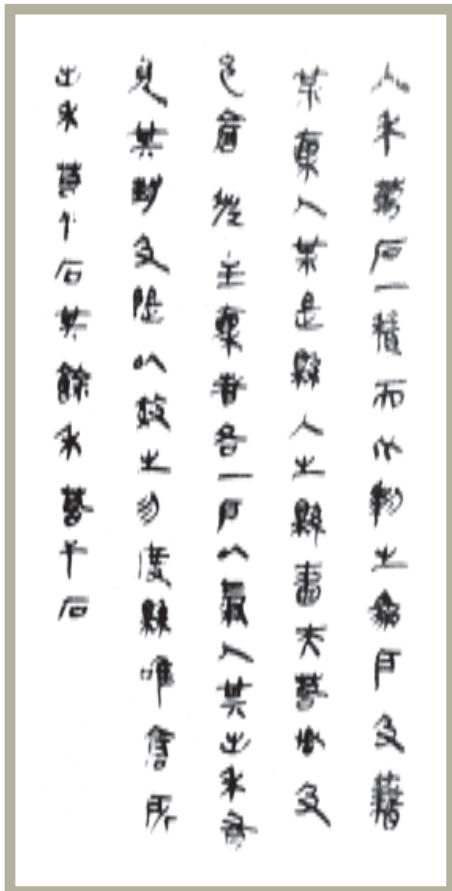 入禾萬石一積而比黎之為戶及籍
某稟人某是縣入之縣嗇夫若丞及
邑倉佐主稟者各一戶以氣人其出禾有
見其封及隄以效之勿度縣唯倉所
出禾若干石其餘禾若干石